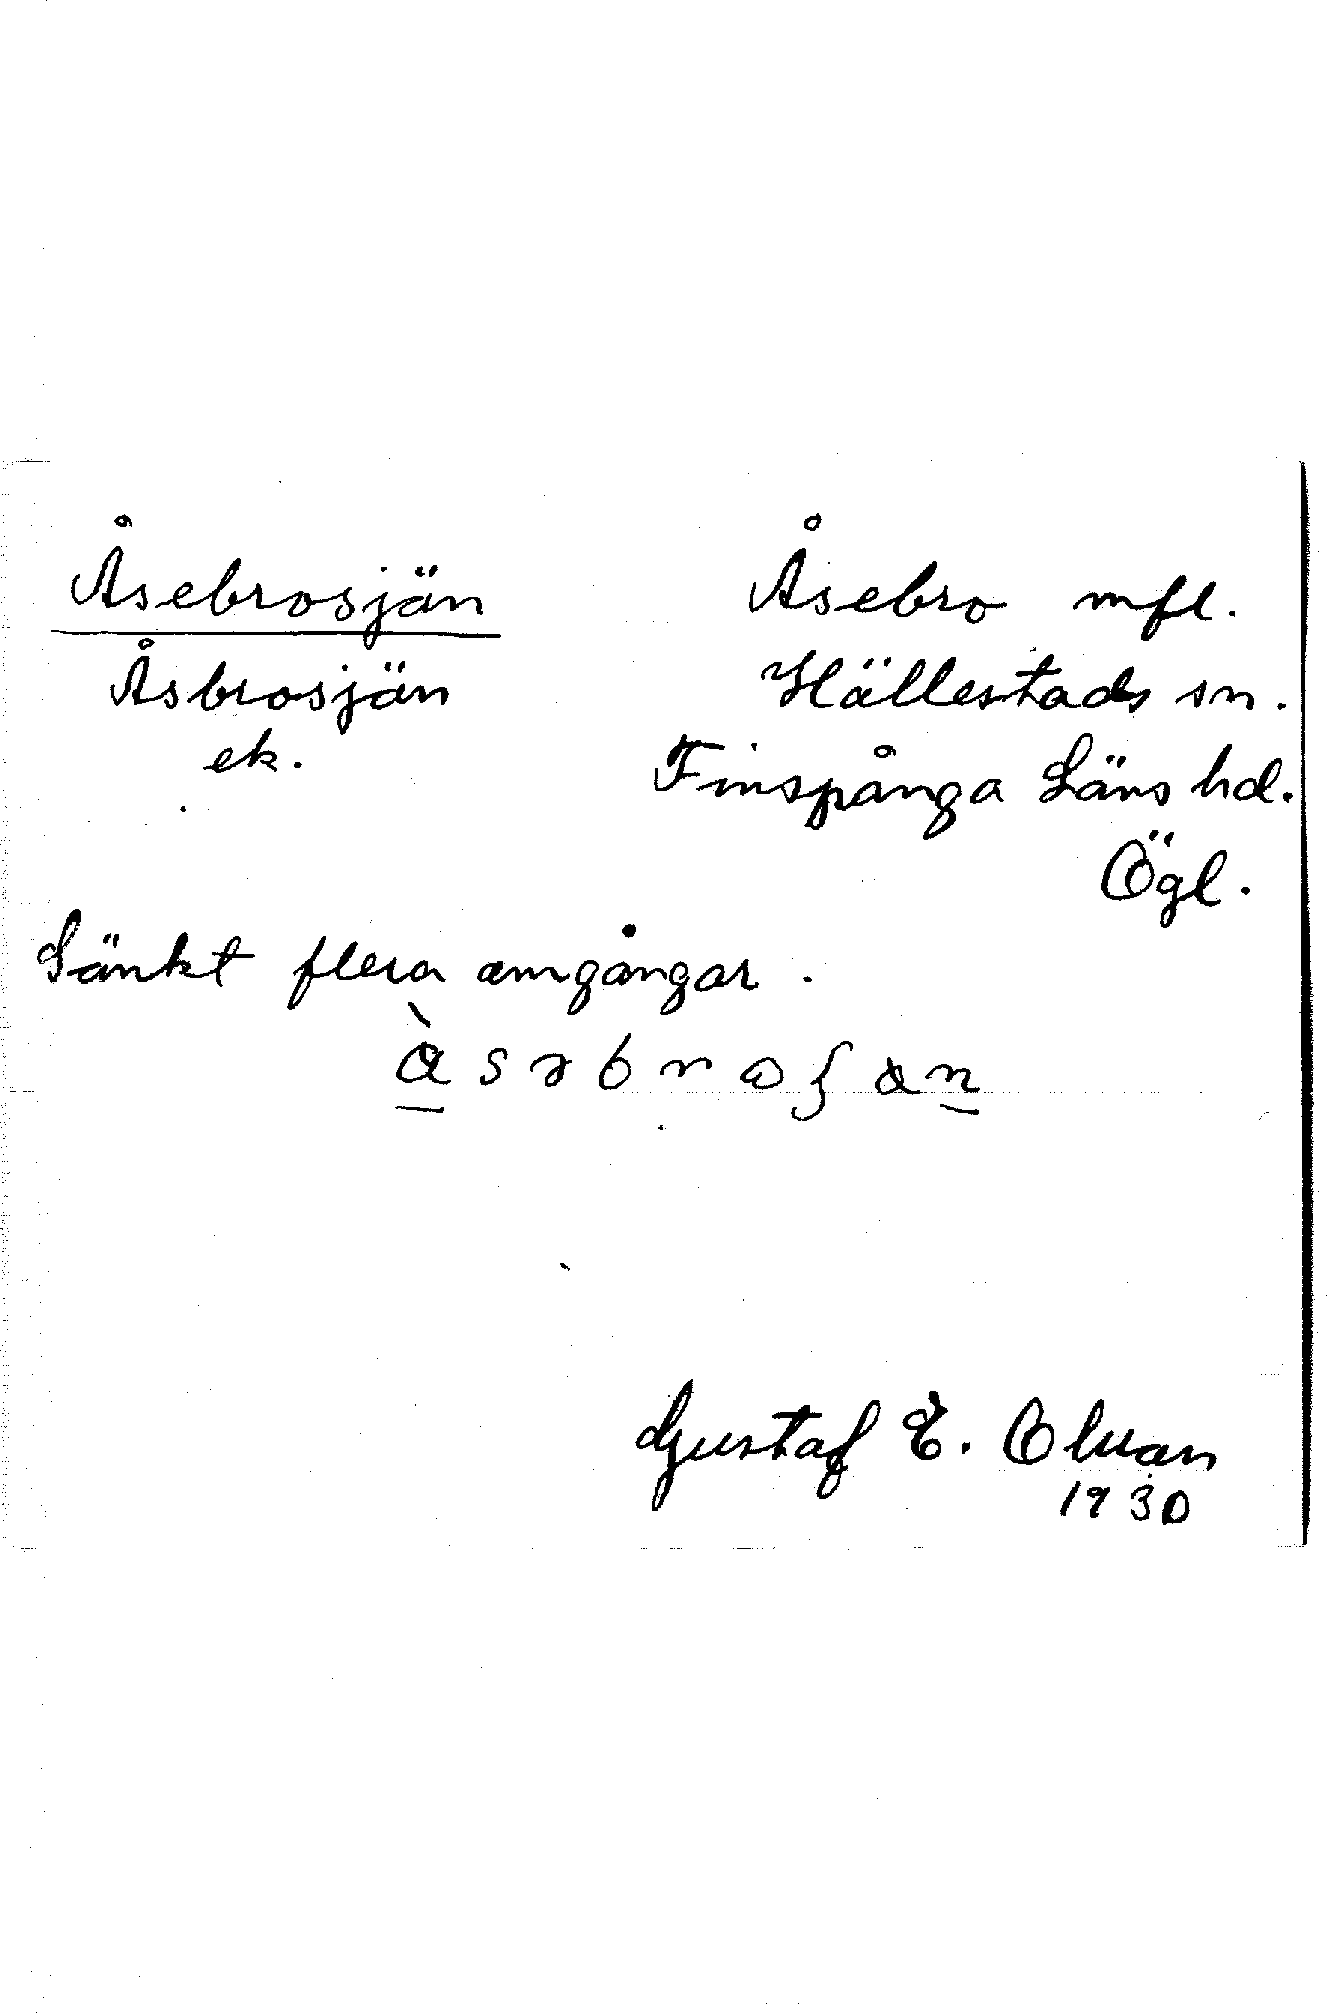 Åsebrosjän
Åsbrosjän
ek.
Åsebro mfl.
Hällestads sn.
Finspånga Läns hd.
Ögl.
Sänkt flera omgångar.
Gustaf E.
1930